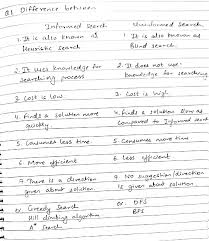 Q1 Difference between
Informed Search Uninformed Search
1. It is also known as 1. It is also known as
Heuristic Search Blind search
2. It uses knowledge for 2. It does not use
searching process knowledge for searching
3. Cost is low. 3. Cost is high
4. Finds a solution more 4. finds a solution slow as
quickly. compared to Informed search
5. Consumes less time. 5. Consumes more time.
6. More efficient 6. less efficient
7. There is a direction 7. No suggestion/direction
given about solution is given about solution
Greedy Search DFS
Hill climbing algorithm BFS
A* Search